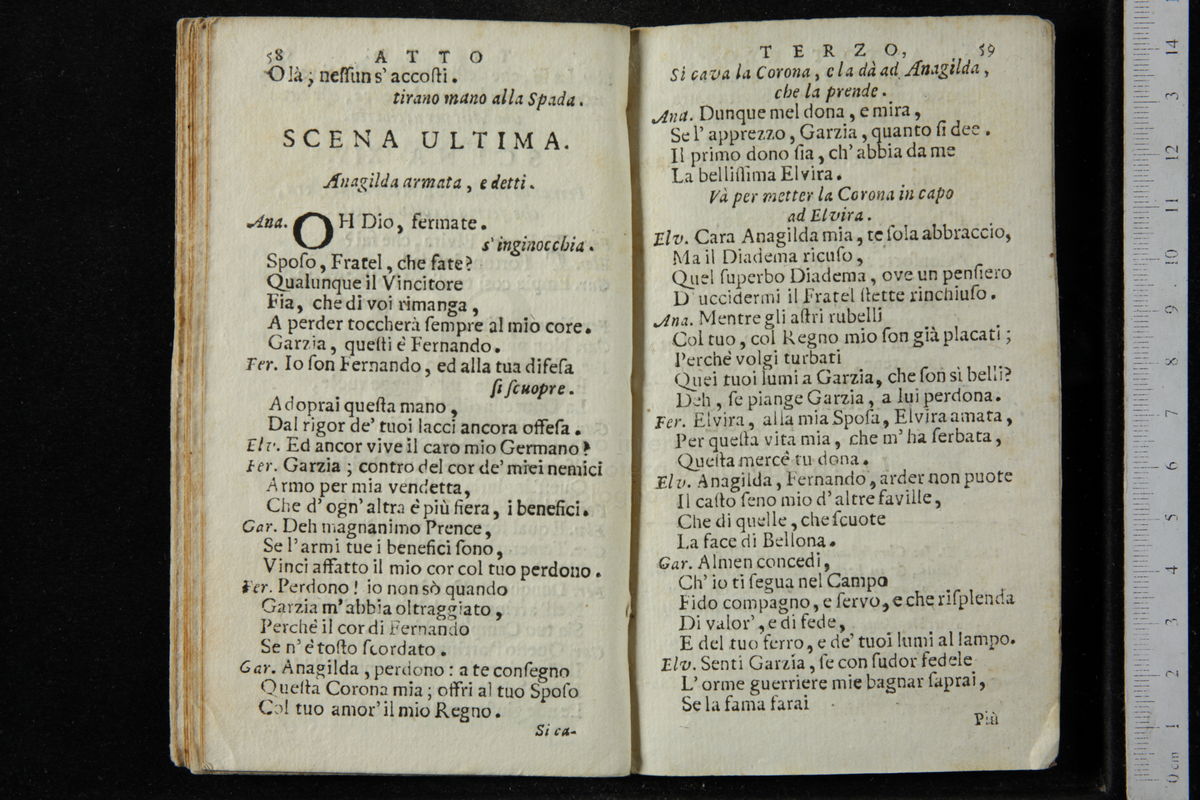 58 ATTO
Olà; neſſun s' accoſti.
tirano mano alla Spada.
SCENA ULTIMA.
Anagilda armata, e detti.
Ana. OH Dio, fermate.
s' inginocchia.
Spoſo, Fratel, che fate?
Qualunque il Vincitore
Fia, che di voi rimanga,
A perder toccherà ſempre al mio core.
Garzia, queſti è Fernando.
Fer. Io ſon Fernando, ed alla tua difeſa
ſi ſcuopre.
Adoprai queſta mano,
Dal rigor de' tuoi lacci ancora offeſa.
Elv. Ed ancor vive il caro mio Germano?
Fer. Garzia; contro del cor de' miei nemici
Armo per mia vendetta,
Che d' ogn' altra è più fiera, i benefici.
Gar. Deh magnanimo Prence,
Se l'armi tue i benefici ſono,
Vinci affatto il mio cor col tuo perdono.
Fer. Perdono! io non sò quando
Garzia m'abbia oltraggiato,
Perchè il cor di Fernando
Se n' è toſto ſcordato.
Gar. Anagilda, perdono: a te conſegno
Queſta Corona mia; offri al tuo Spoſo
Col tuo amor' il mio Regno.
Si ca-
TERZO, 59
Si cava la Corona, e la dà ad Anagilda,
che la prende.
Ana. Dunque mel dona, e mira,
Se l' apprezzo, Garzia, quanto ſi dee.
Il primo dono ſia, ch' abbia da me
La belliſſima Elvira.
Và per metter la Corona in capo
ad Elvira.
Elv. Cara Anagilda mia, te ſola abbraccio,
Ma il Diadema ricuſo,
Quel ſuperbo Diadema, ove un penſiero
D' uccidermi il Fratel ſtette rinchiuſo.
Ana. Mentre gli aſtri rubelli
Col tuo, col Regno mio ſon già placati;
Perchè volgi turbati
Quei tuoi lumi a Garzia, che ſon sì belli?
Deh, ſe piange Garzia, a lui perdona.
Fer. Elvira, alla mia Spoſa, Elvira amata,
Per queſta vita mia, che m' ha ſerbata,
Queſta mercè tu dona.
Elv. Anagilda, Fernando, arder non puote
Il caſto ſeno mio d' altre faville,
Che di quelle, che ſcuote
La face di Bellona.
Gar. Almen concedi,
Ch' io ti ſegua nel Campo
Fido compagno, e ſervo, e che riſplenda
Di valor', e di fede,
E del tuo ferro, e de' tuoi lumi al lampo.
Elv. Senti Garzia, ſe con ſudor fedele
L' orme guerriere mie bagnar ſaprai,
Se la fama farai
Più
14
13
12
11
10
9
8
7
6
5
4
3
2
1
0 cm